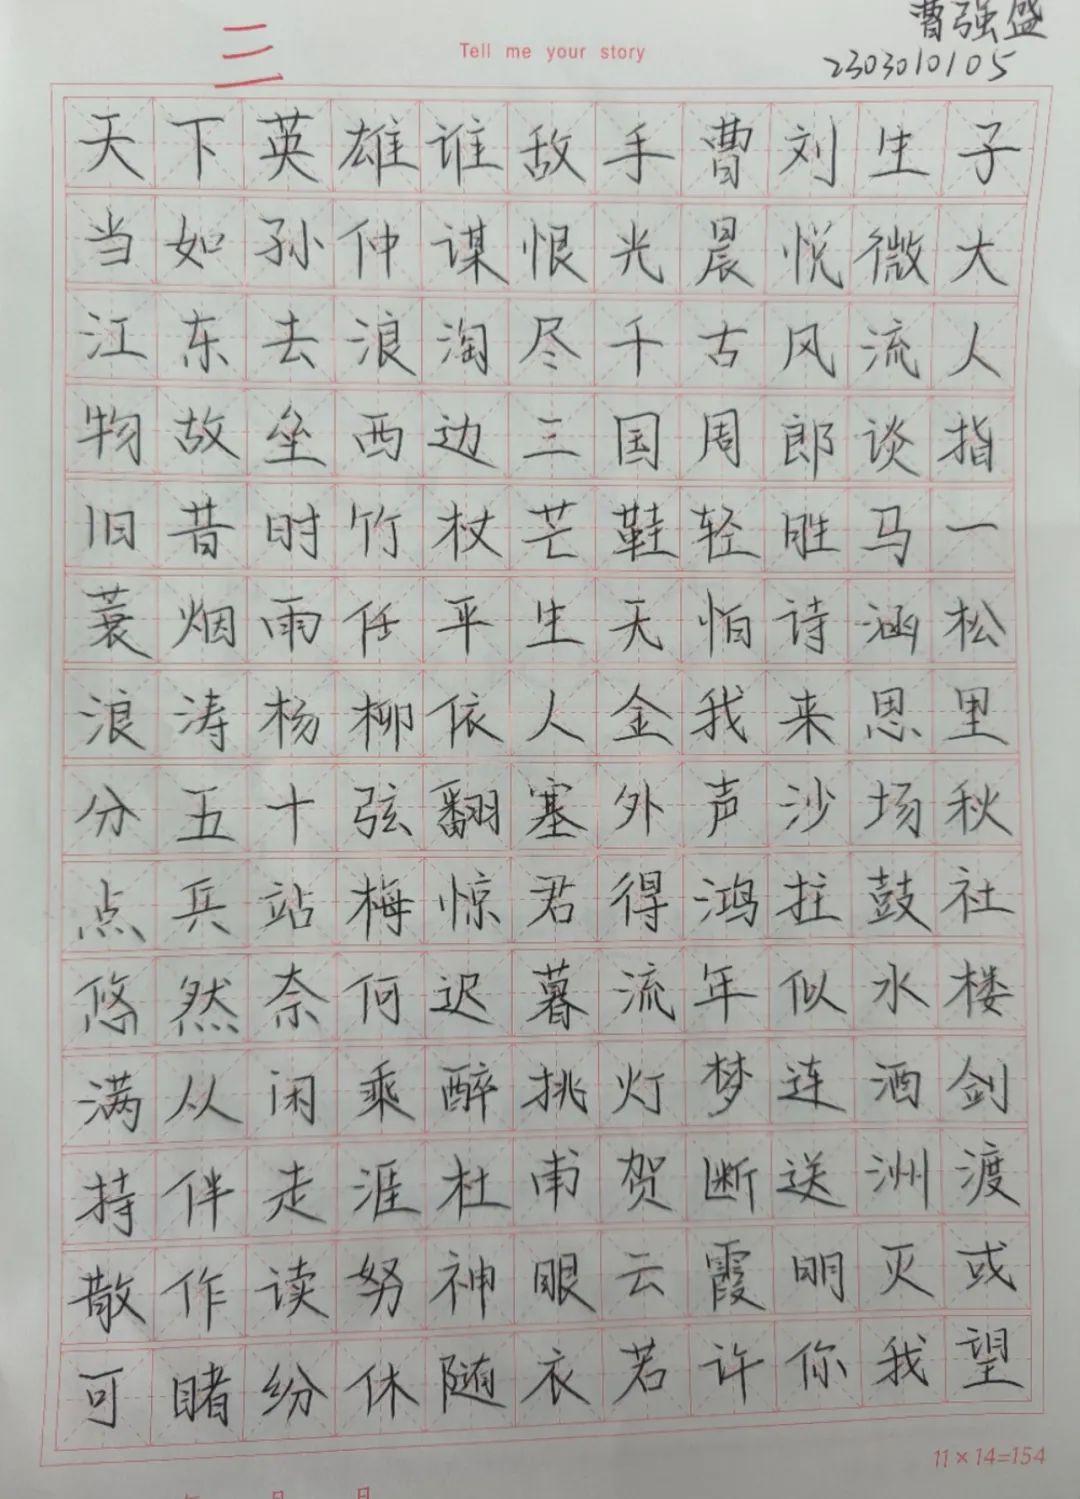 曹强盛
三
Tell me your story
2303010105
天下英雄谁敌手曹刘生子
当如孙仲谋恨光晨悦微大
江东去浪淘尽千古风流人
物故垒西边三国周郎谈指
旧昔时竹杖芒鞋轻胜马一
蓑烟雨任平生天怕诗涵松
浪涛杨柳依人金我来思里
分五十弦翻塞外声沙场秋
点兵站梅惊君得鸿拄鼓社
悠然奈何迟暮流年似水楼
满从闲乘醉挑灯梦连酒剑
持伴走涯杜甫贺断送洲渡
散作读努神眼云霞明灭或
可睹纷休随衣若许你我望
11×14=154